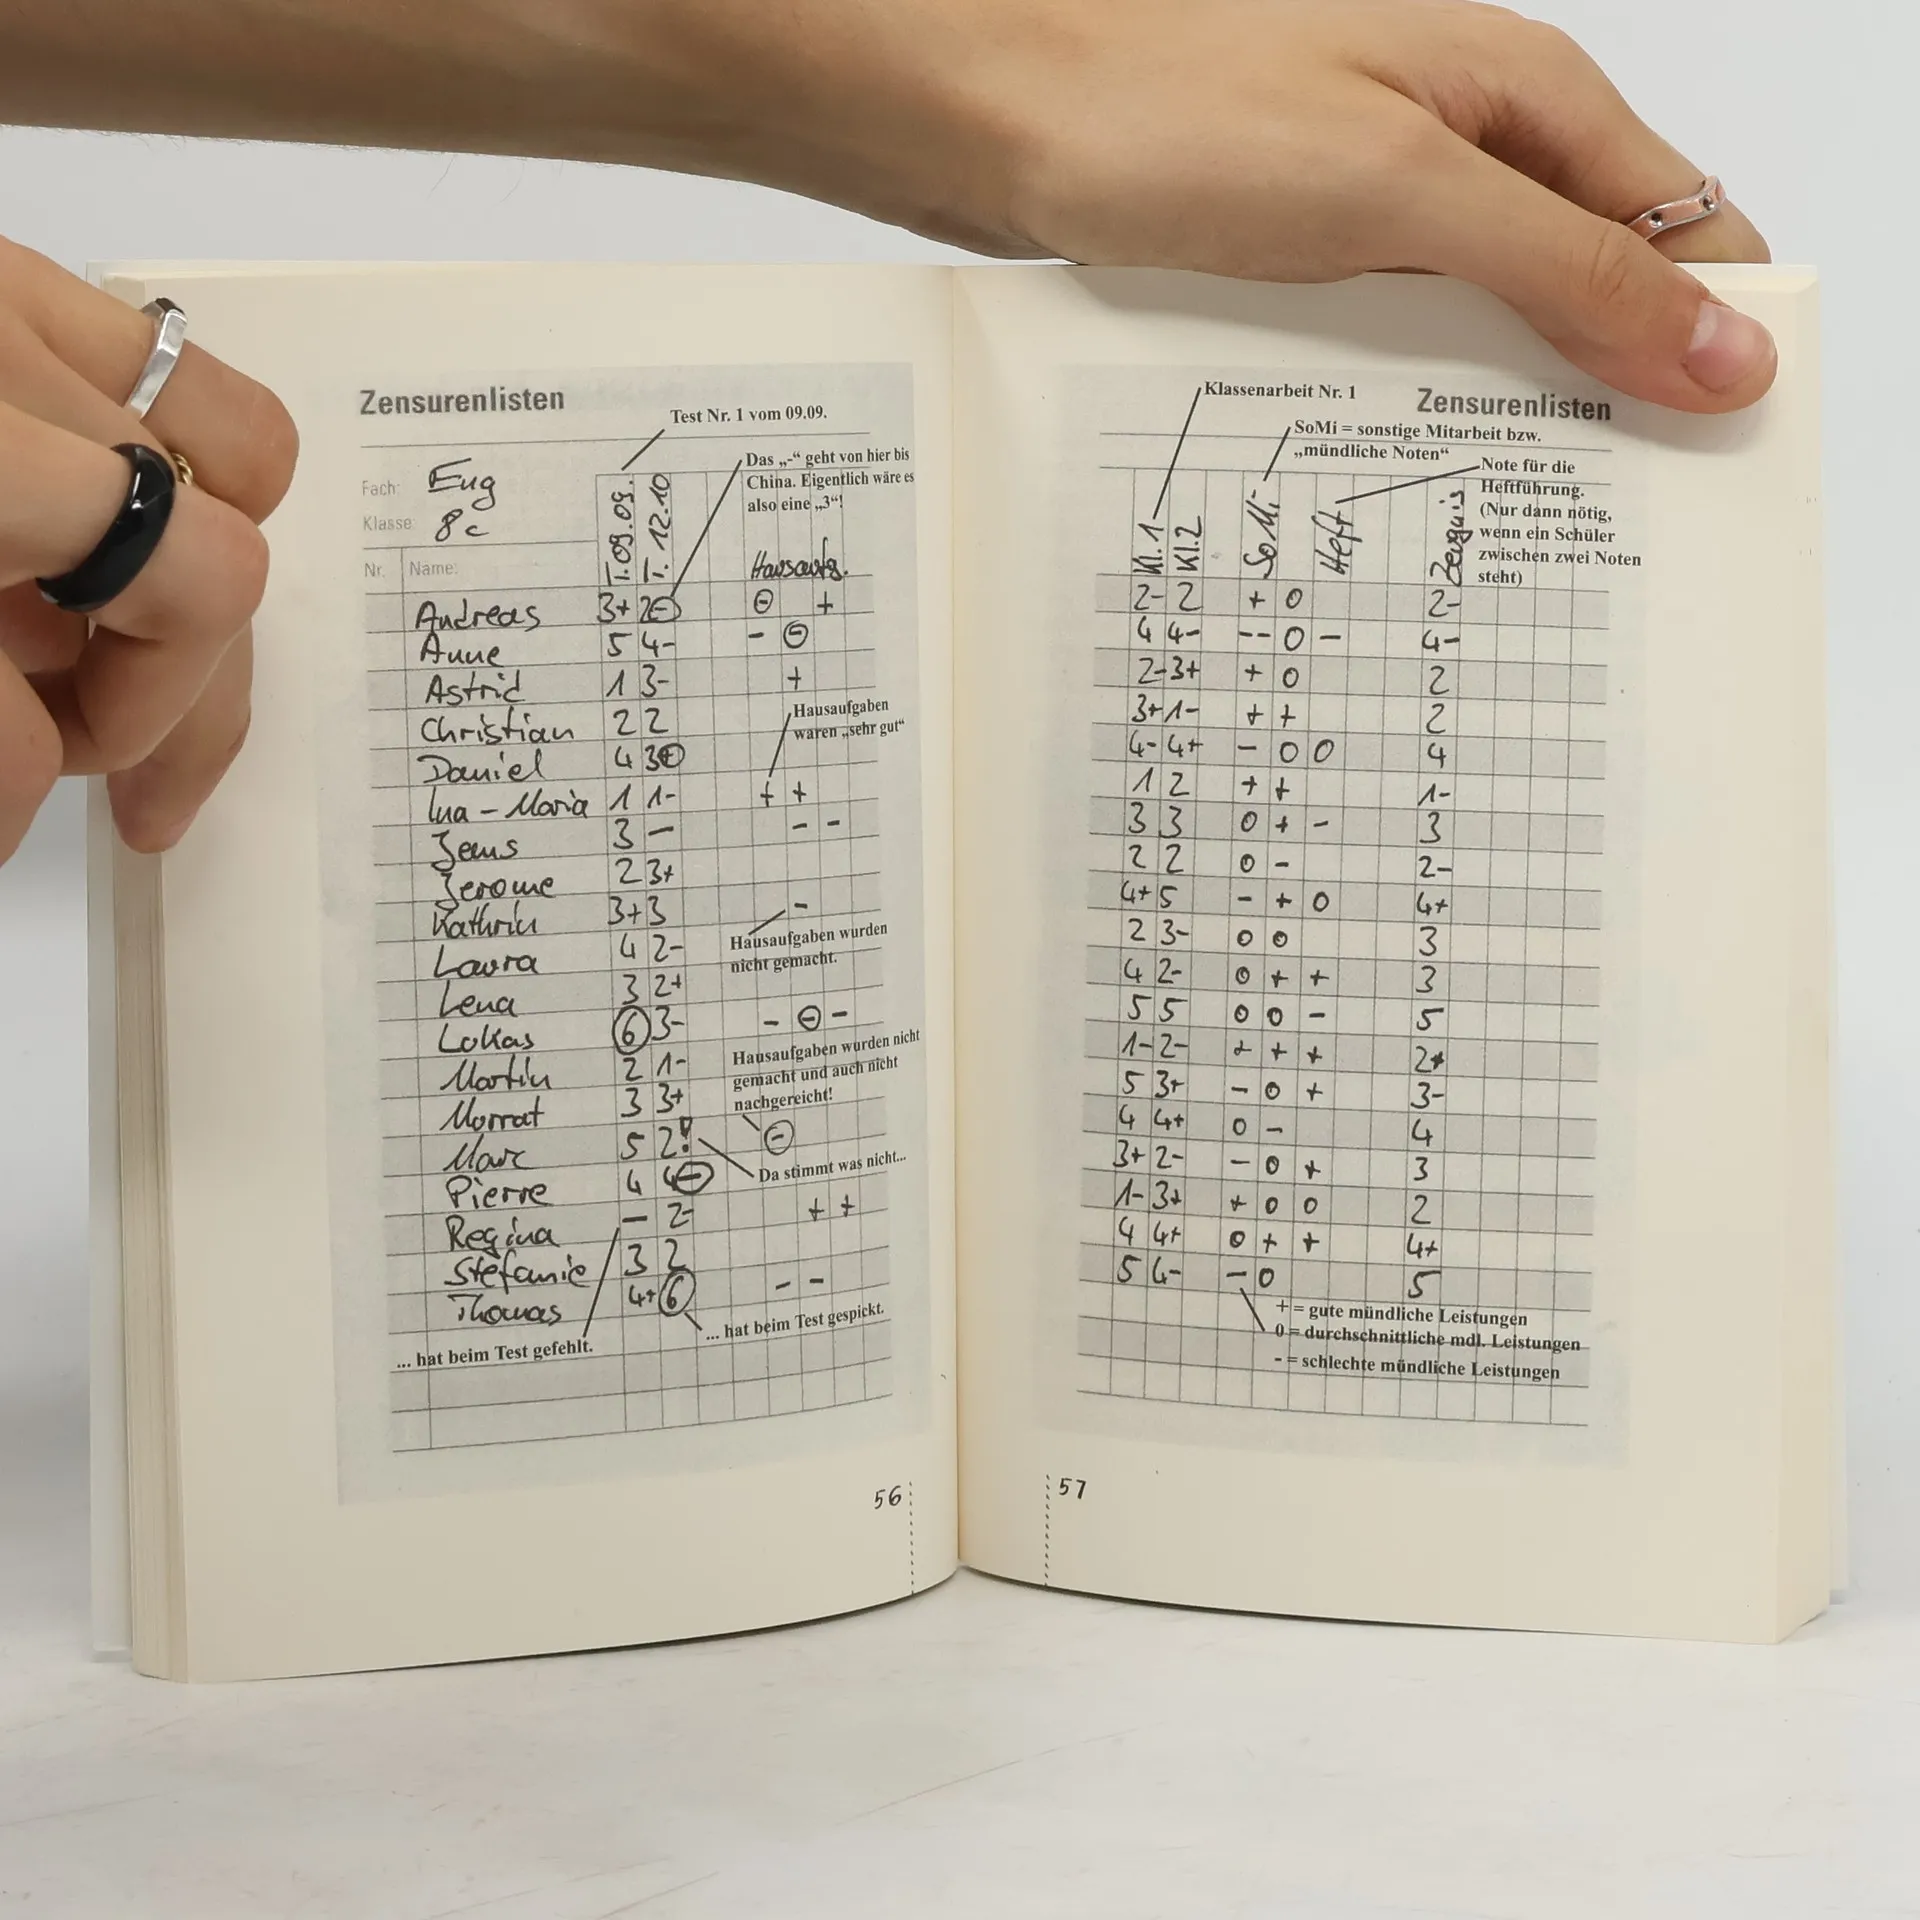 Zensurenlisten
Test Nr. 1 vom 09.09.
Das „-“ geht von hier bis
China. Eigentlich wäre es
also eine „3“!
Fach: Eng
Klasse: 8c
T. 09.09. T. 12.10 Hausaufg.
Nr. Name:
Andreas 3+ 2⊖ ⊖ +
Anne 5 4- - ⊖
Astrid 1 3- +
Christian 2 2
Hausaufgaben
waren „sehr gut“
Daniel 4 3⊕
Ina-Maria 1 1- + +
Jens 3 - - -
Jerome 2 3+
Kathrin 3+ 3 -
Hausaufgaben wurden
nicht gemacht.
Laura 4 2-
Lena 3 2+
Lukas 6 3- - ⊖ -
Hausaufgaben wurden nicht
gemacht und auch nicht
nachgereicht!
Martin 2 1-
Murrat 3 3+
Marc 5 2! ⊖
Da stimmt was nicht...
Pierre 4 4⊖
Regina - 2- + +
Stefanie 3 2
Thomas 4+ 6 - -
... hat beim Test gespickt.
... hat beim Test gefehlt.
56
Klassenarbeit Nr. 1
Zensurenlisten
SoMi = sonstige Mitarbeit bzw.
„mündliche Noten“
Note für die
Heftführung.
(Nur dann nötig,
wenn ein Schüler
zwischen zwei Noten
steht)
Kl. 1 Kl. 2 SoMi Heft Zeugnis
2- 2 + 0 2-
4 4- -- 0 - 4-
2- 3+ + 0 2
3+ 1- + + 2
4- 4+ - 0 0 4
1 2 + + 1-
3 3 0 + - 3
2 2 0 - 2-
4+ 5 - + 0 4+
2 3- 0 0 3
4 2- 0 + + 3
5 5 0 0 - 5
1- 2- + + + 2+
5 3+ - 0 + 3-
4 4+ 0 - 4
3+ 2- - 0 + 3
1- 3+ + 0 0 2
4 4+ 0 + + 4+
5 4- - 0 5
+ = gute mündliche Leistungen
0 = durchschnittliche mdl. Leistungen
- = schlechte mündliche Leistungen
57